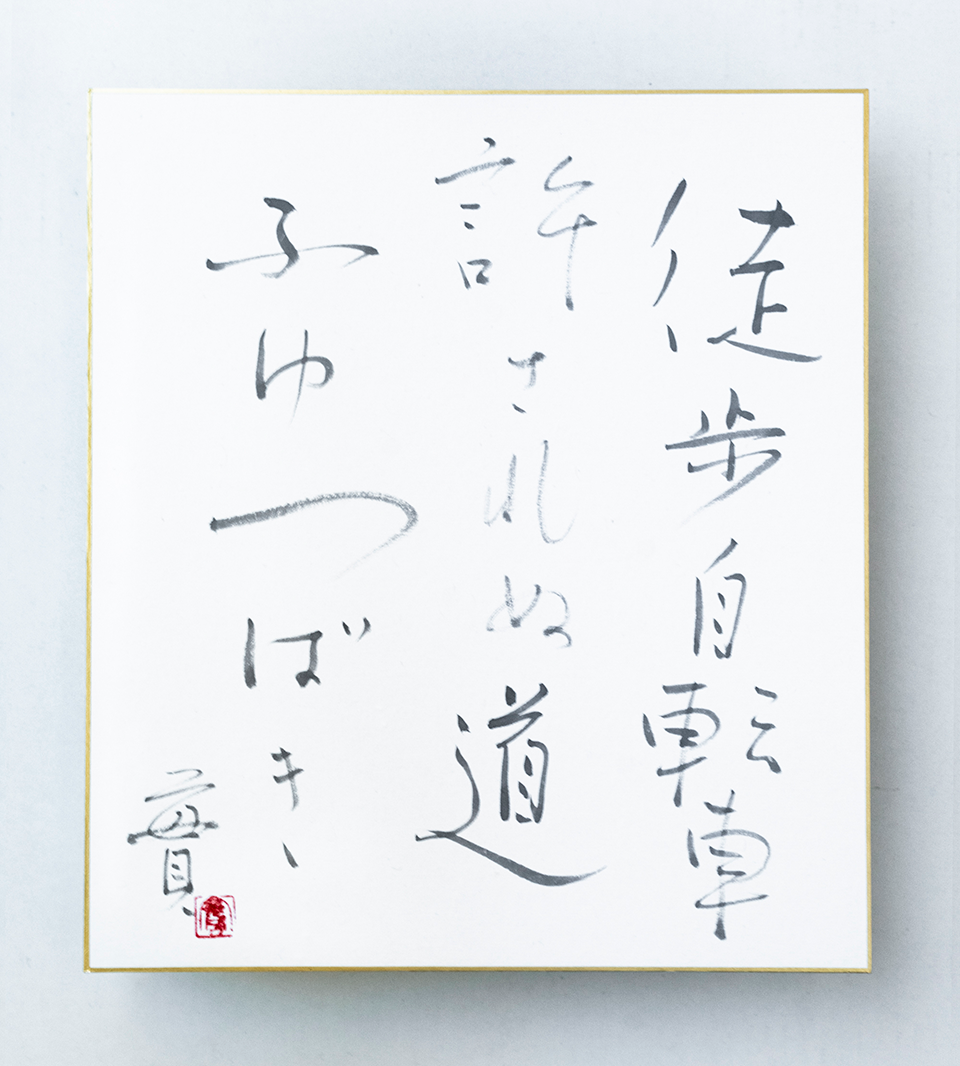 徒歩自転車
許されぬ道
ふゆつばき